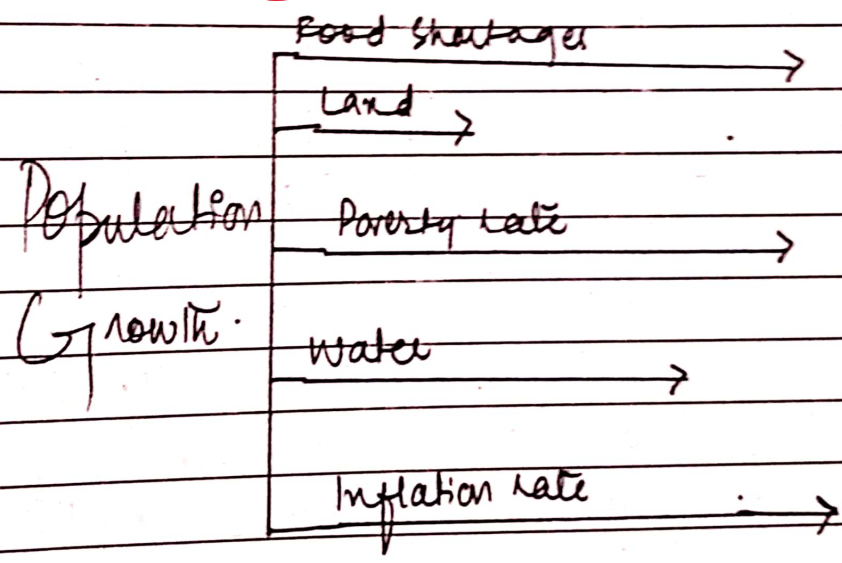 Food Shortages
Land
Population
Poverty rate
Growth.
Water
Inflation rate